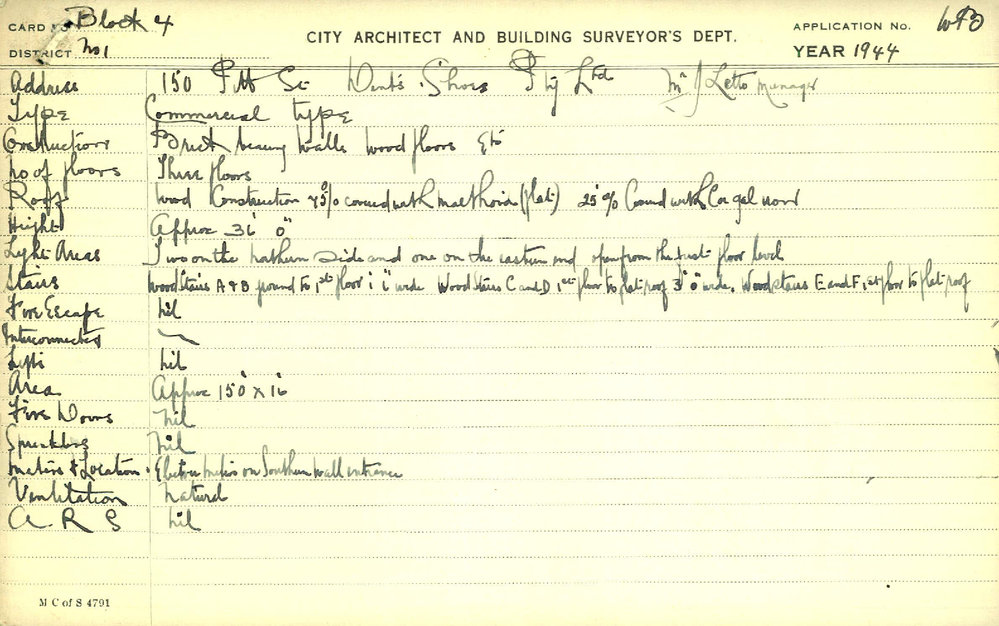 CARD No. Block 4
DISTRICT No 1
CITY ARCHITECT AND BUILDING SURVEYOR'S DEPT.
APPLICATION No.
YEAR 1944
Address 150 Pitt St Shoes Pty Ltd Mr J Letto Manager
Type Commercial type
Construction Brick bearing walls wood floors Etc
No of floors Three floors
Roof Wood Construction 75% covered with malthoid (flat) 25% Covered with Cor gal iron
Height Approx 36' 0"
Light Areas Two on the northern side and one on the eastern end open from the first floor level
Stairs Wood Stairs A & B ground to 1st floor wide Wood Stairs C and D 1st floor to flat roof 3' 0" wide. Wood stairs E and F 1st floor to flat roof
Fire Escape nil
Interconnected
Lifts nil
Area Approx 150' x 16'
Fire Doors nil
Sprinklers nil
Meters & Location. Electric meters on Southern wall entrance
Ventilation natural
A. R S nil
M C of S 4791